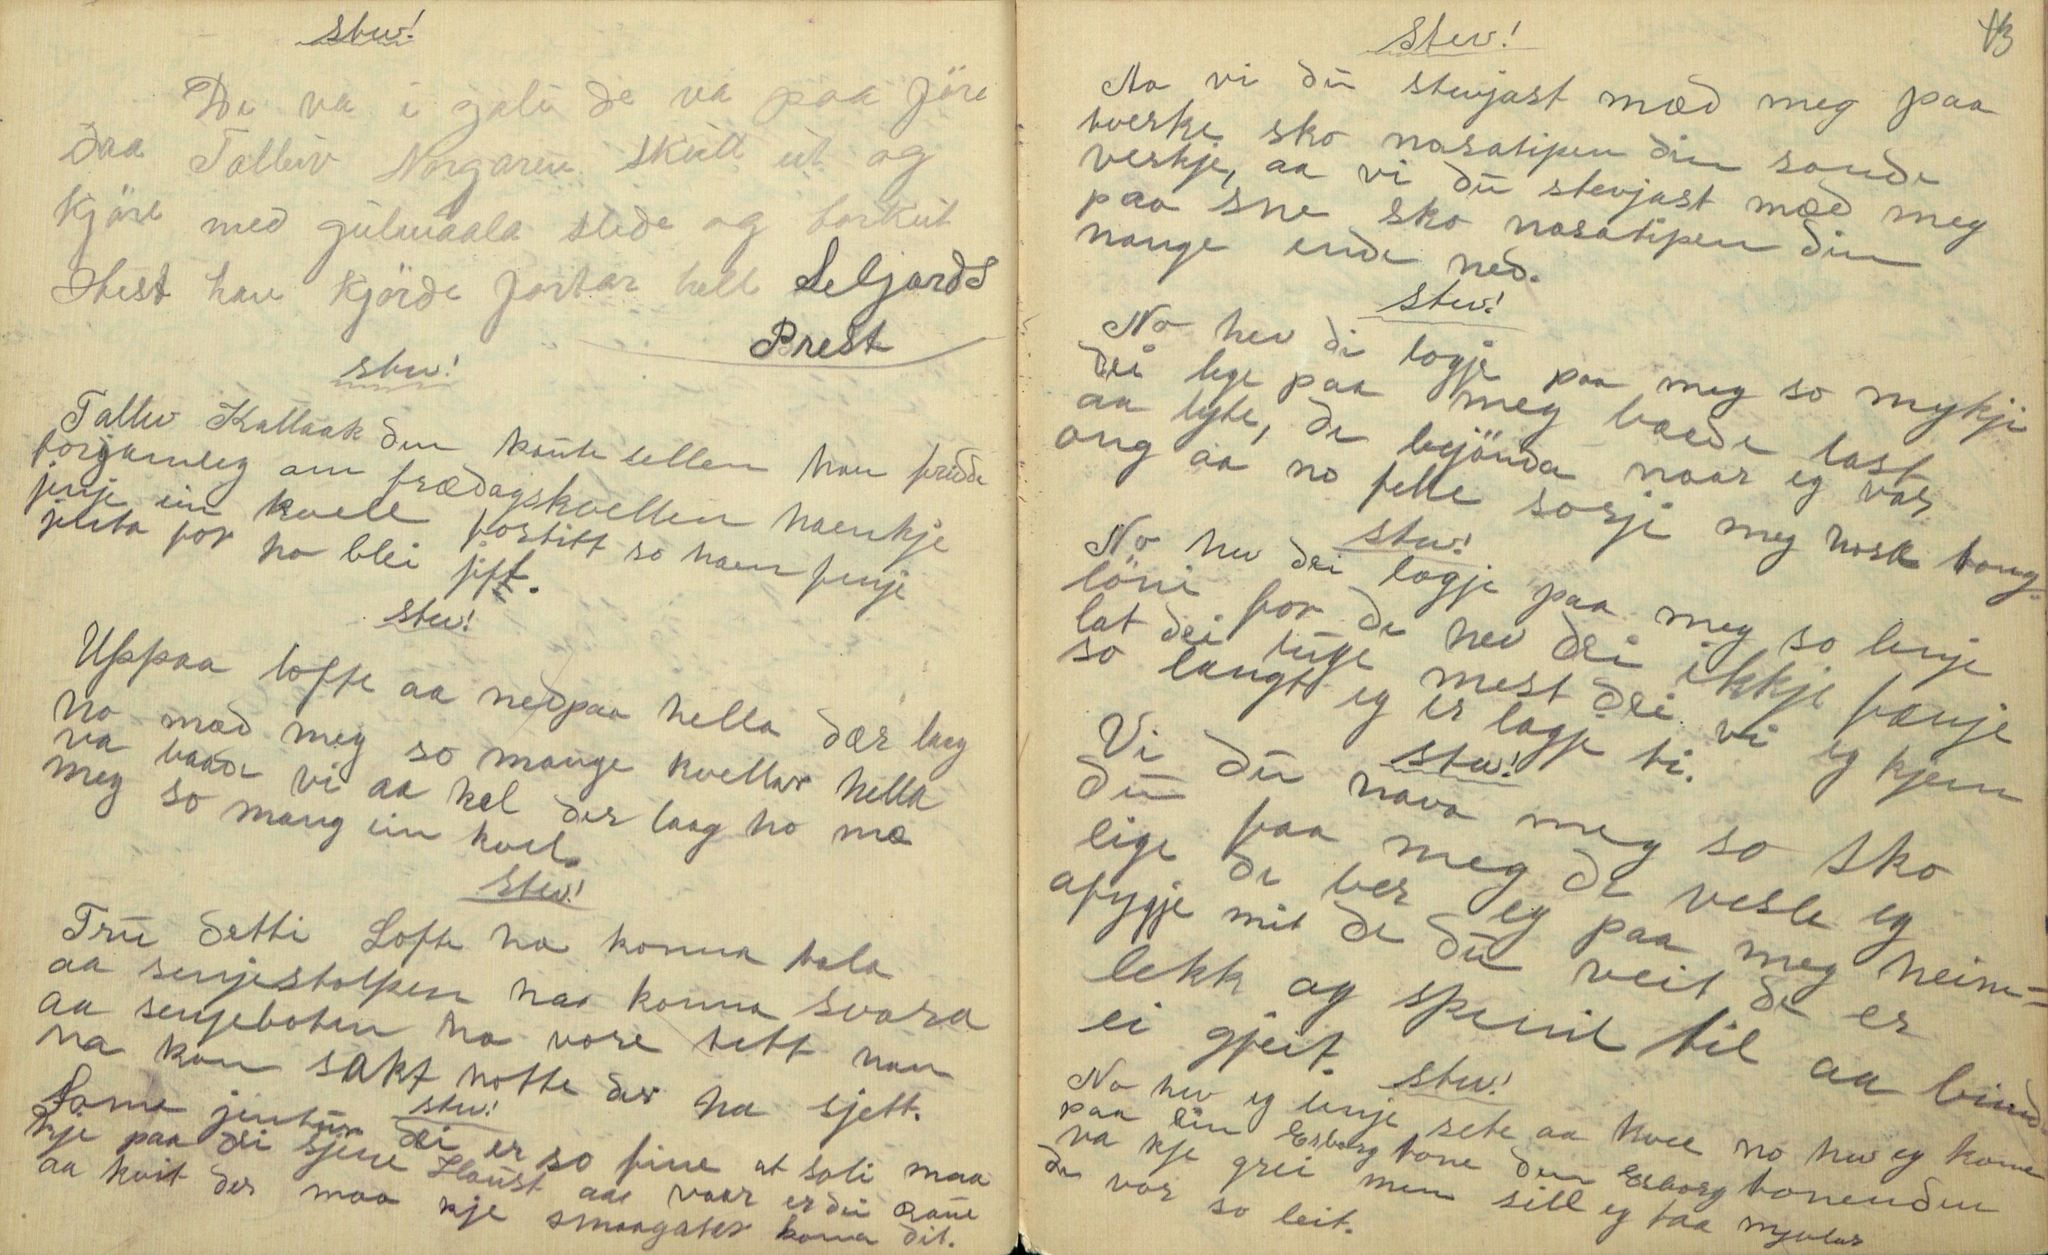 stev!
De va i gali de va paa Jöre
daa Talleiv Norgaren skull ut og
kjöre med gulmaala slede og
Hest han kjörde fortar hell Seljords
Prest
stev!
Talleiv Kallaak den kaute sellen han fridde
torgamleg om frædagskvellen haenkje
jenje ein kvell fortitt so haen fenje
jenta for ho blei jift.
stev!
Uppaa lofte aa nedpaa hella dær laag
ho mæd meg so mange kvellar hella
va baade vi aa hal der laag ho mæ
meg so mang ein kvel.
stev!
Tru detti Lofte ha konna tala
aa senjestolpen har konna svara
aa senjeboten ha vore tett nan
ha kan sakt notte der ha sjett.
stev!
Some jentur dei er so fine at soli maa
kje paa dei sjine Haust aa vaar er dei raue
aa kvit der maa kje smaagutar koma dit.
43
stev!
Aa vi du stevjast mæd meg paa
verkje sko nasatipen din soude
verkje, aa vi du stevjast mæd meg
paa sne sko nasatipen din
nauge ende ned.
stev!
No hev di logje paa meg so mykji
dei lyge paa meg baade last
aa lyte, de bejönda naar eg var
ong aa no felle sorji meg nosk tong
stev!
No hev dei logje paa meg so lenje
löni for de hev dei ikkje fænje
lat dei luge mest dei vi eg kjem
so langt eg er lagje ti.
stev!
Vi du hava meg so sko
du faa meg de vesle eg
lige de ber eg paa meg heim=
afygje mit de du veit de er
lekk og spunil til aa bind
ei gjeit.
stev!
No hev eg lenje sete aa kvee no hev eg kome
paa ein Esborg tone den Esborg tonen den
va kje grei men sill eg taa mjolar
de var so leit.